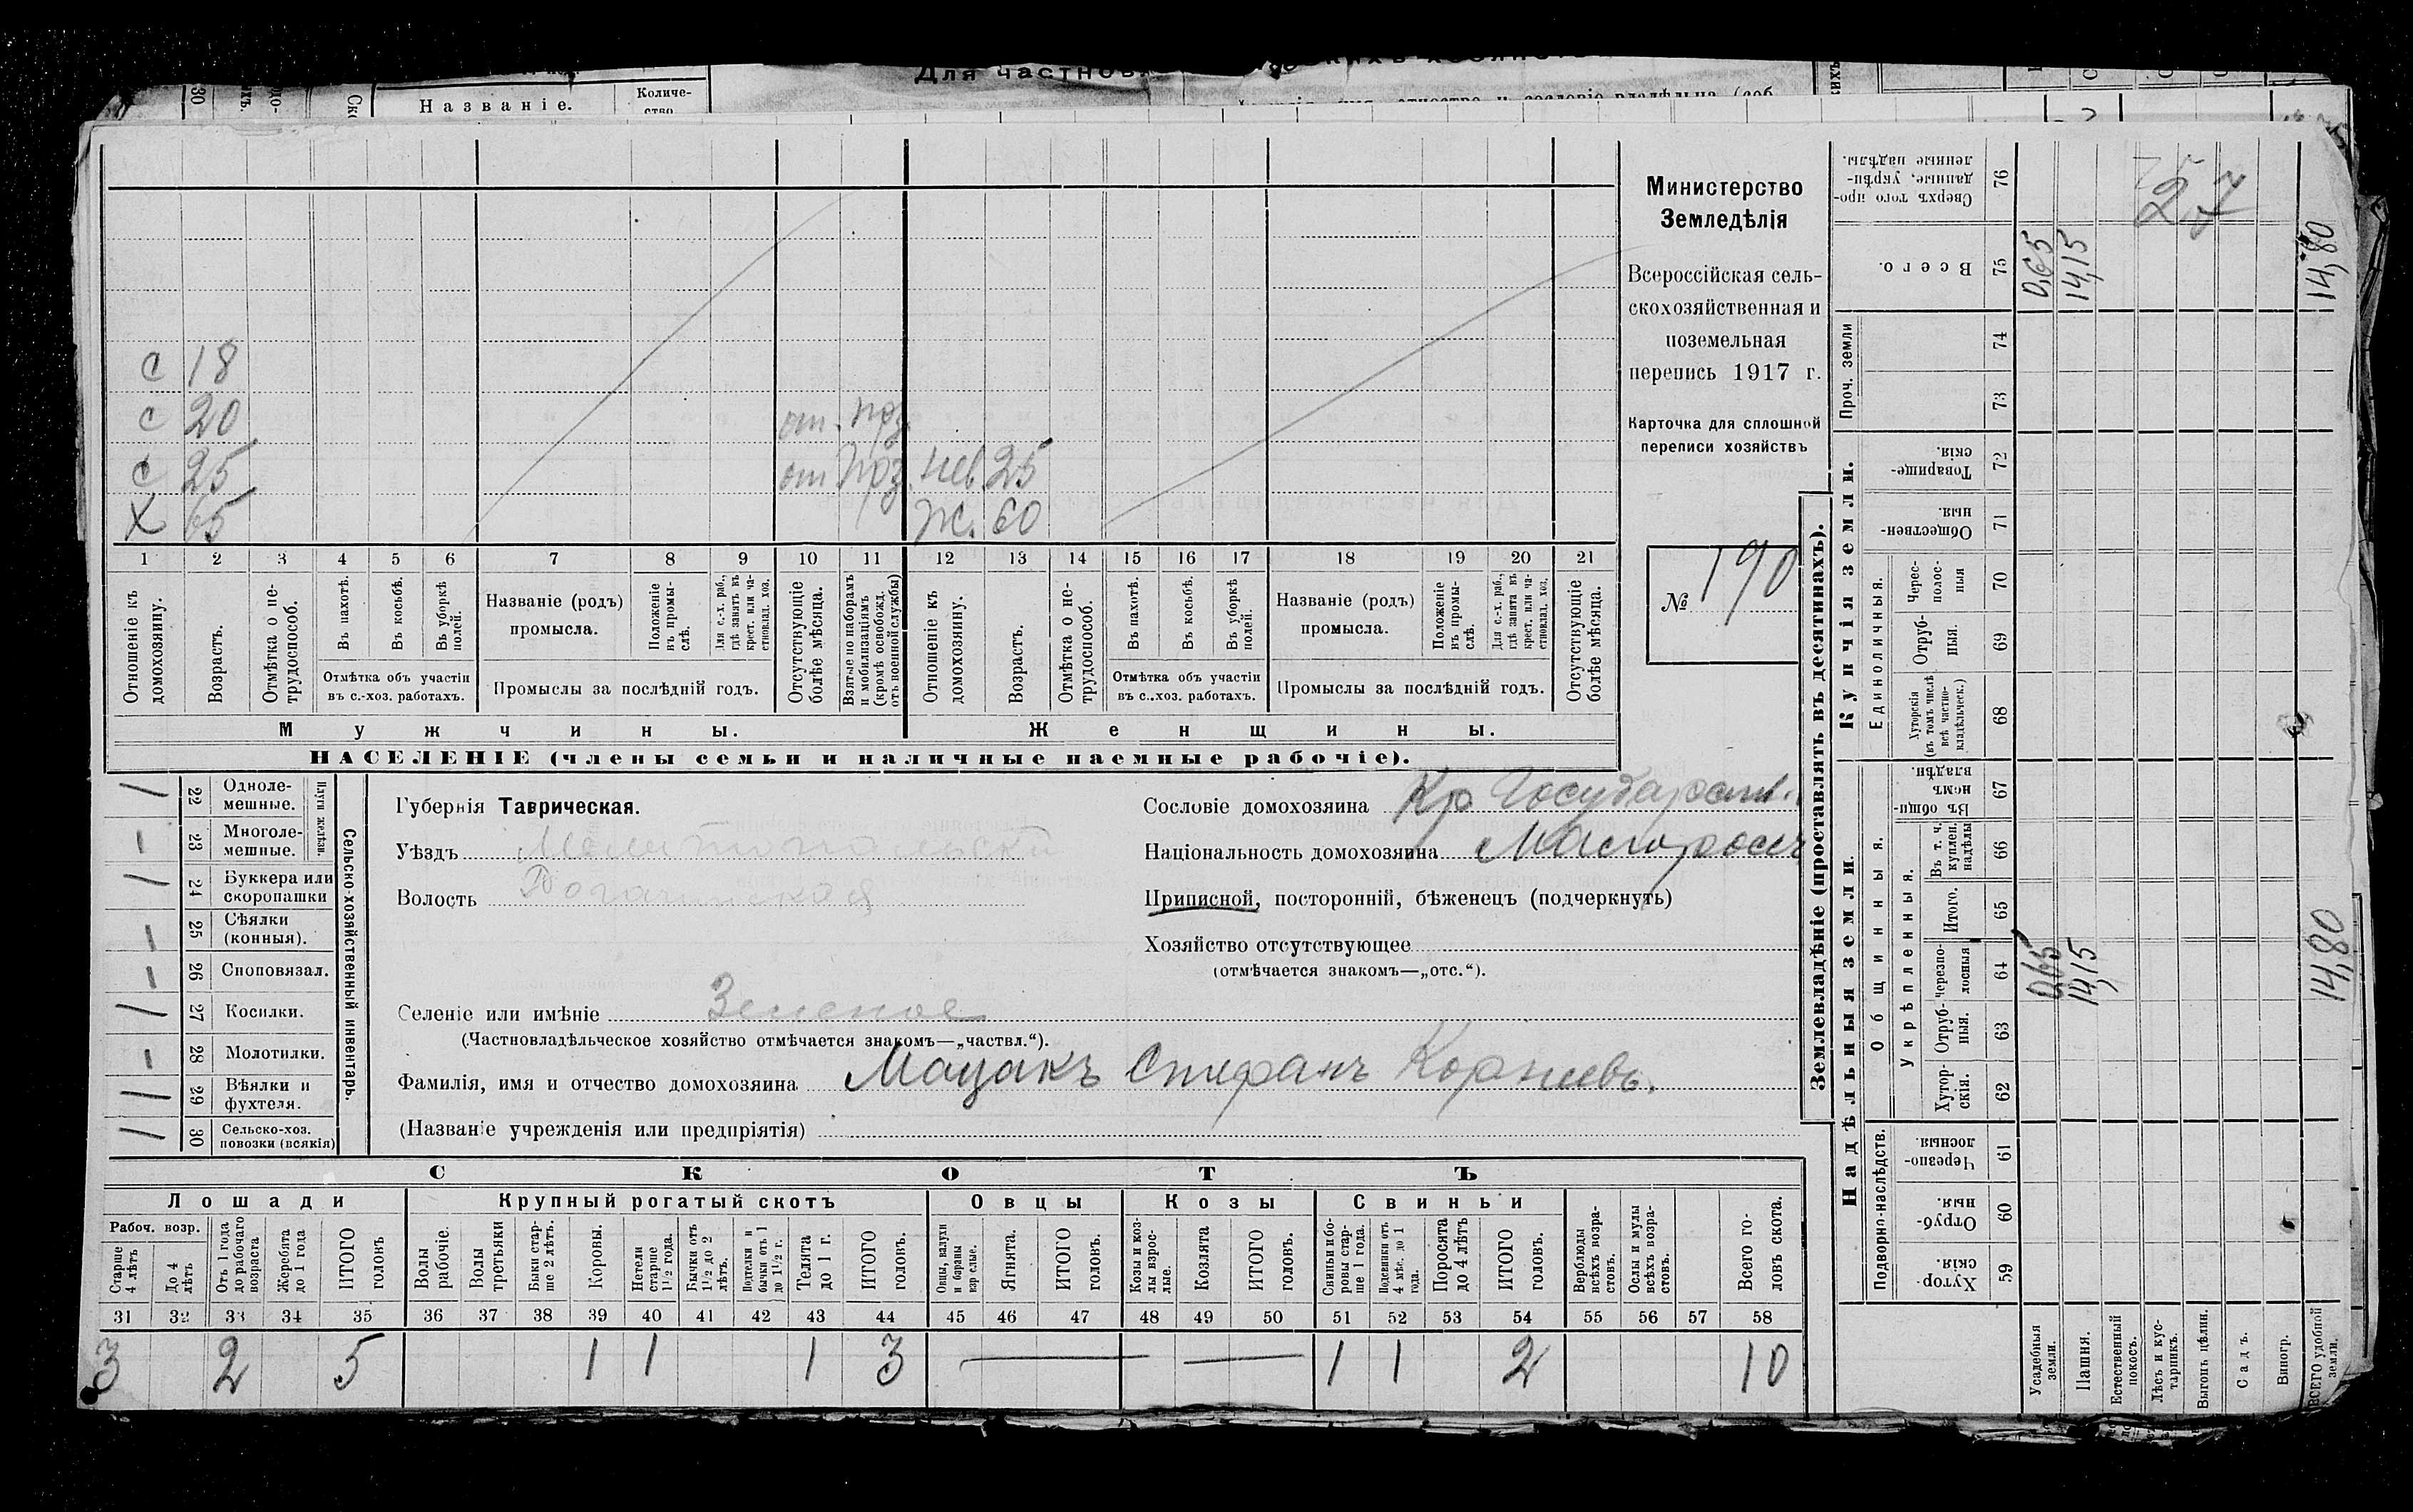 Для частновл
Названіе.
Количе-
ство
С 18
С 20 от. поз.
С 25 от поз. нев. 25
Х 65 Ж. 60
1 2 3 4 5 6 7 8 9 10 11 12 13 14 15 16 17 18 19 20 21
Отношеніе къ домохозяину.
Возрастъ.
Отмѣтка о не-
трудоспособ.
Въ пахотѣ.
Въ косьбѣ.
Въ уборкѣ полей.
Отмѣтка объ участіи
въ с.-хоз. работахъ.
Названіе (родъ)
промысла.
Положеніе
въ промы-
слѣ.
Для с.-х. раб.,
гдѣ занятъ въ
крест. или ча-
стновлад. хоз.
Промыслы за послѣдній годъ.
Отсутствующіе
болѣе мѣсяца.
Взятые по наборамъ
и мобилизаціямъ
(кромѣ освобожд.
отъ военной службы)
Отношеніе къ
домохозяину.
Возрастъ.
Отмѣтка о не-
трудоспособ.
Въ пахотѣ.
Въ косьбѣ.
Въ уборкѣ
полей.
Отмѣтка объ участіи
въ с.-хоз. работахъ.
Названіе (родъ)
промысла.
Положеніе
въ промы-
слѣ.
Для с.-х. раб.,
гдѣ занята въ
крест. или ча-
стновлад. хоз.
Промыслы за послѣдній годъ.
Отсутствующіе
болѣе мѣсяца.
Мужчины.
Женщины.
НАСЕЛЕНІЕ (члены семьи и наличные наемные рабочіе).
Министерство
Земледѣлія
Всероссійская сель-
скохозяйственная и
поземельная
перепись 1917 г.
Карточка для сплошной
переписи хозяйствъ
№ 190
1 22 Одноле-
мешные.
— 23 Многоле-
мешные.
Плуги желѣзн.
1 24 Буккера или
скоропашки
— 25 Сѣялки
(конныя).
— 26 Сноповязал.
1 27 Косилки.
— 28 Молотилки.
1 29 Вѣялки и
фухтеля.
1 30 Сельско-хоз.
повозки (всякія)
Сельско-хозяйственный инвентарь.
Губернія Таврическая.
Уѣздъ Мелитопольскій
Волость Рогачинская
Селеніе или имѣніе Зеленое
(Частновладѣльческое хозяйство отмѣчается знакомъ—„частвл.“).
Фамилія, имя и отчество домохозяина Мацакъ Стефанъ Корніевъ.
(Названіе учрежденія или предпріятія)
Сословіе домохозяина Кр Государств.
Національность домохозяина Малоросъ
Приписной, посторонній, бѣженецъ (подчеркнуть)
Хозяйство отсутствующее
(отмѣчается знакомъ—„отс.“).
СКОТЪ
Лошади
Крупный рогатый скотъ
Овцы
Козы
Свиньи
Рабоч. возр.
Старше
4 лѣтъ
До 4
лѣтъ
Отъ 1 года
до рабочаго
возраста
Жеребята
до 1 года
ИТОГО
головъ
Волы
рабочіе.
Волы
третьяки
Быки стар-
ше 2 лѣтъ.
Коровы.
Нетели
старше
1½ года.
Бычки отъ
1½ до 2
лѣтъ.
Подтелки и
бычки отъ 1
до 1½ г.
Телята
до 1 г.
ИТОГО
головъ.
Овцы, валухи
и бараны
взрослые.
Ягнята.
ИТОГО
головъ.
Козы и коз-
лы взрос-
лые.
Козлята
ИТОГО
головъ.
Свиньи и бо-
ровы стар-
ше 1 года.
Подсвинки отъ
4 мѣс. до 1
года.
Поросята
до 4 лѣтъ
ИТОГО
головъ.
Верблюды
всѣхъ возра-
стовъ.
Ослы и мулы
всѣхъ возра-
стовъ.
Всего го-
ловъ скота.
31 32 33 34 35 36 37 38 39 40 41 42 43 44 45 46 47 48 49 50 51 52 53 54 55 56 57 58
3 2 5 1 1 1 3 — — 1 1 2 10
Землевладѣніе (проставлять въ десятинахъ).
Надѣльныя земли.
Купчія земли.
Проч. земли
Подворно-наслѣдств.
Общинныя.
Укрѣпленныя.
Единоличныя.
Хутор-
скія. 59
Отруб-
ныя. 60
Черезпо-
лосныя 61
Хутор-
скія. 62
Отруб-
ныя. 63
Черезпо-
лосныя 64
Итого. 65
Въ т. ч.
куплен.
надѣлы 66
Въ общин-
номъ
владѣн. 67
Хуторскія
(въ томъ числѣ
всѣ частно-
владѣльческ.) 68
Отруб-
ныя. 69
Черес-
полос-
ныя 70
Обществен-
ныя. 71
Товарище-
скія. 72
73
74
Всего. 75
Сверхъ того про-
данные, укрѣп-
ленные надѣлы. 76
Усадебныя
земли. 0,65 0,65
Пашня. 14,15 14,15
Естественный
покосъ.
Лѣсъ и кус-
тарникъ.
Выгонъ цѣлин.
Садъ.
Виногр.
ВСЕГО удобной
земли. 14,80 14,80
27